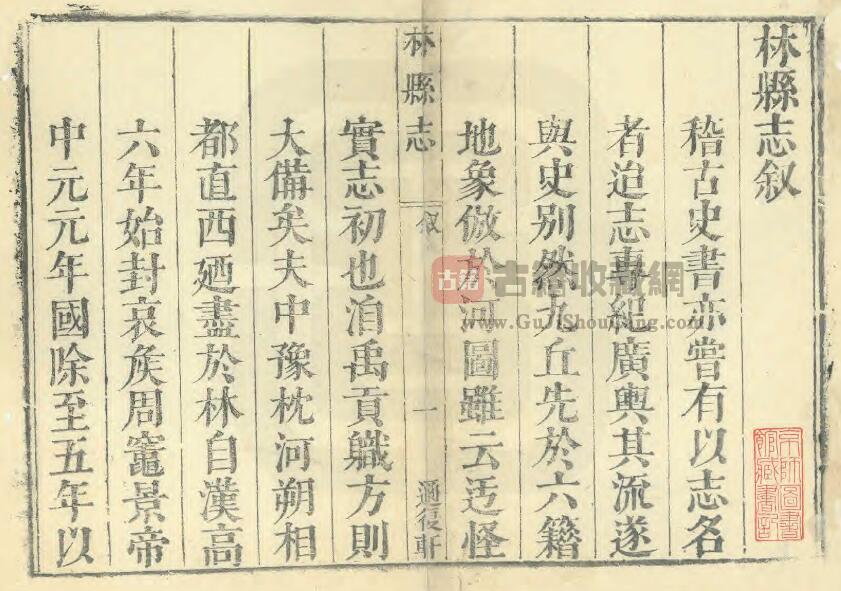 林縣志叙
稽古史書亦嘗有以志名
者迨志專紀廣輿其流遂
與史别然九丘先於六籍
地象倣於河圖雖云迃怪
林縣志
叙
一
實志初也洎禹貢職方則
大備矣夫中豫枕河朔相
都直西廼盡於林自漢高
六年始封哀矦周竈景帝
中元元年國除至五年以
古籍
古籍收藏網
www.GuJiShouCang.com
京師圖書
館藏書記